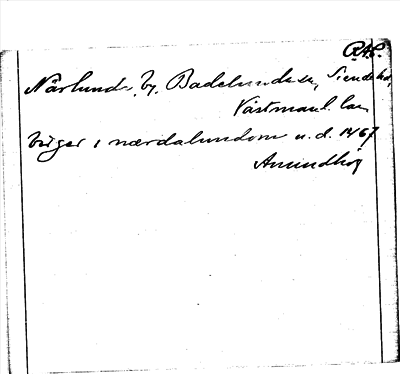 RAP.
Närlunda, by, Badelunda sn, Siende hd,
Västmanl. län
birger i nærdalundom u. d. 1467
Amundhög